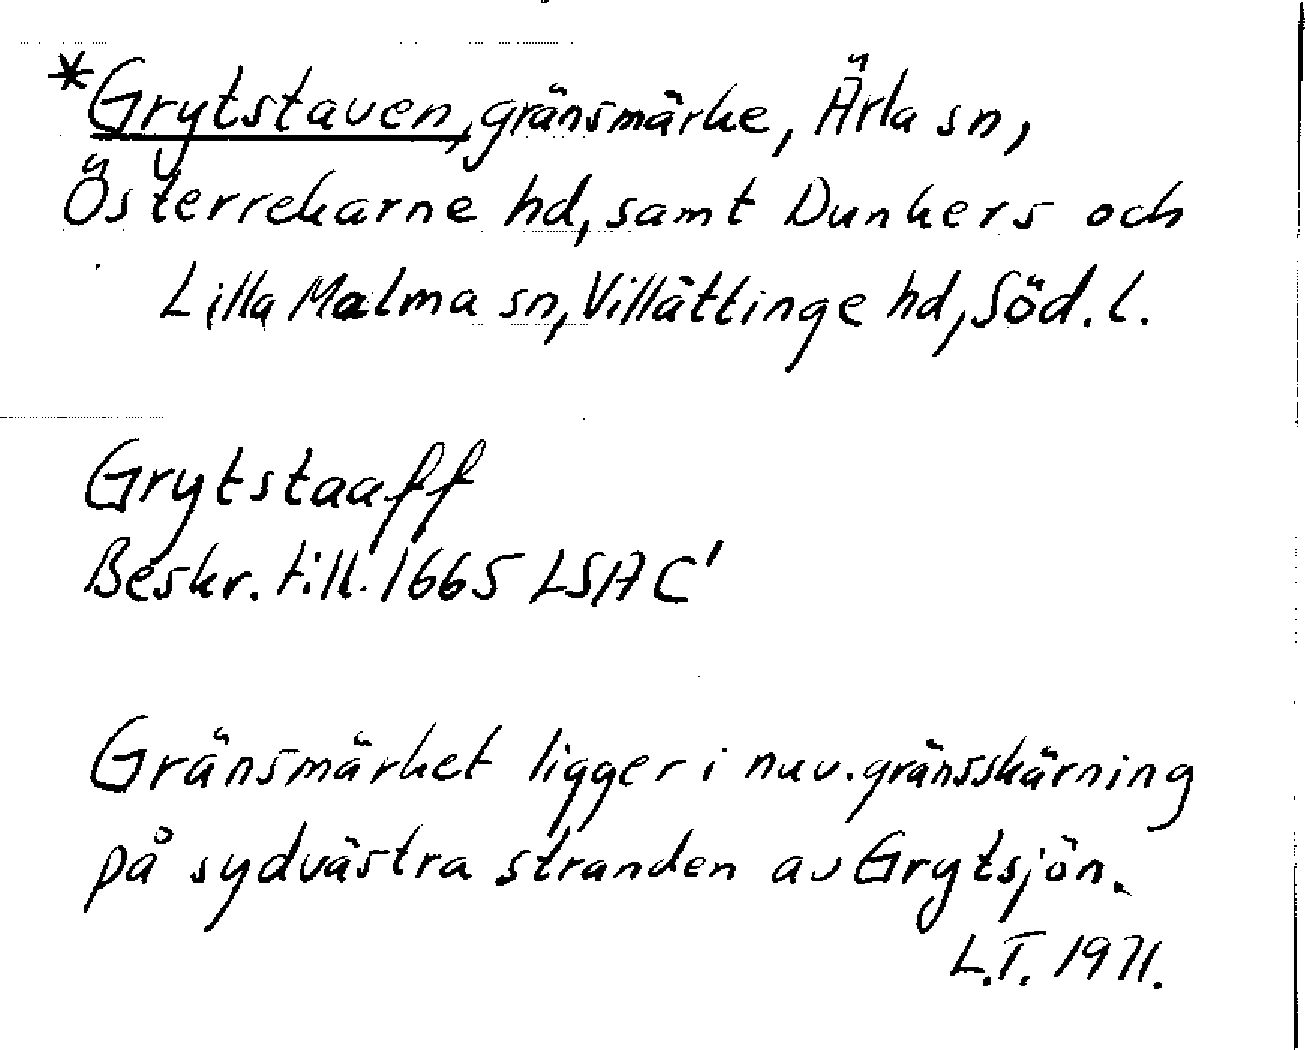 *Grytstaven, gränsmärke, Ärla sn,
Österrekarne hd, samt Dunkers och
Lilla Malma sn, Villåttinge hd, Söd. l.
Grytstaaff
Beskr. till. 1665 LSA C'
Gränsmärket ligger i nuv. gränsskärning
på sydvästra stranden av Grytsjön.
L.T. 1971.